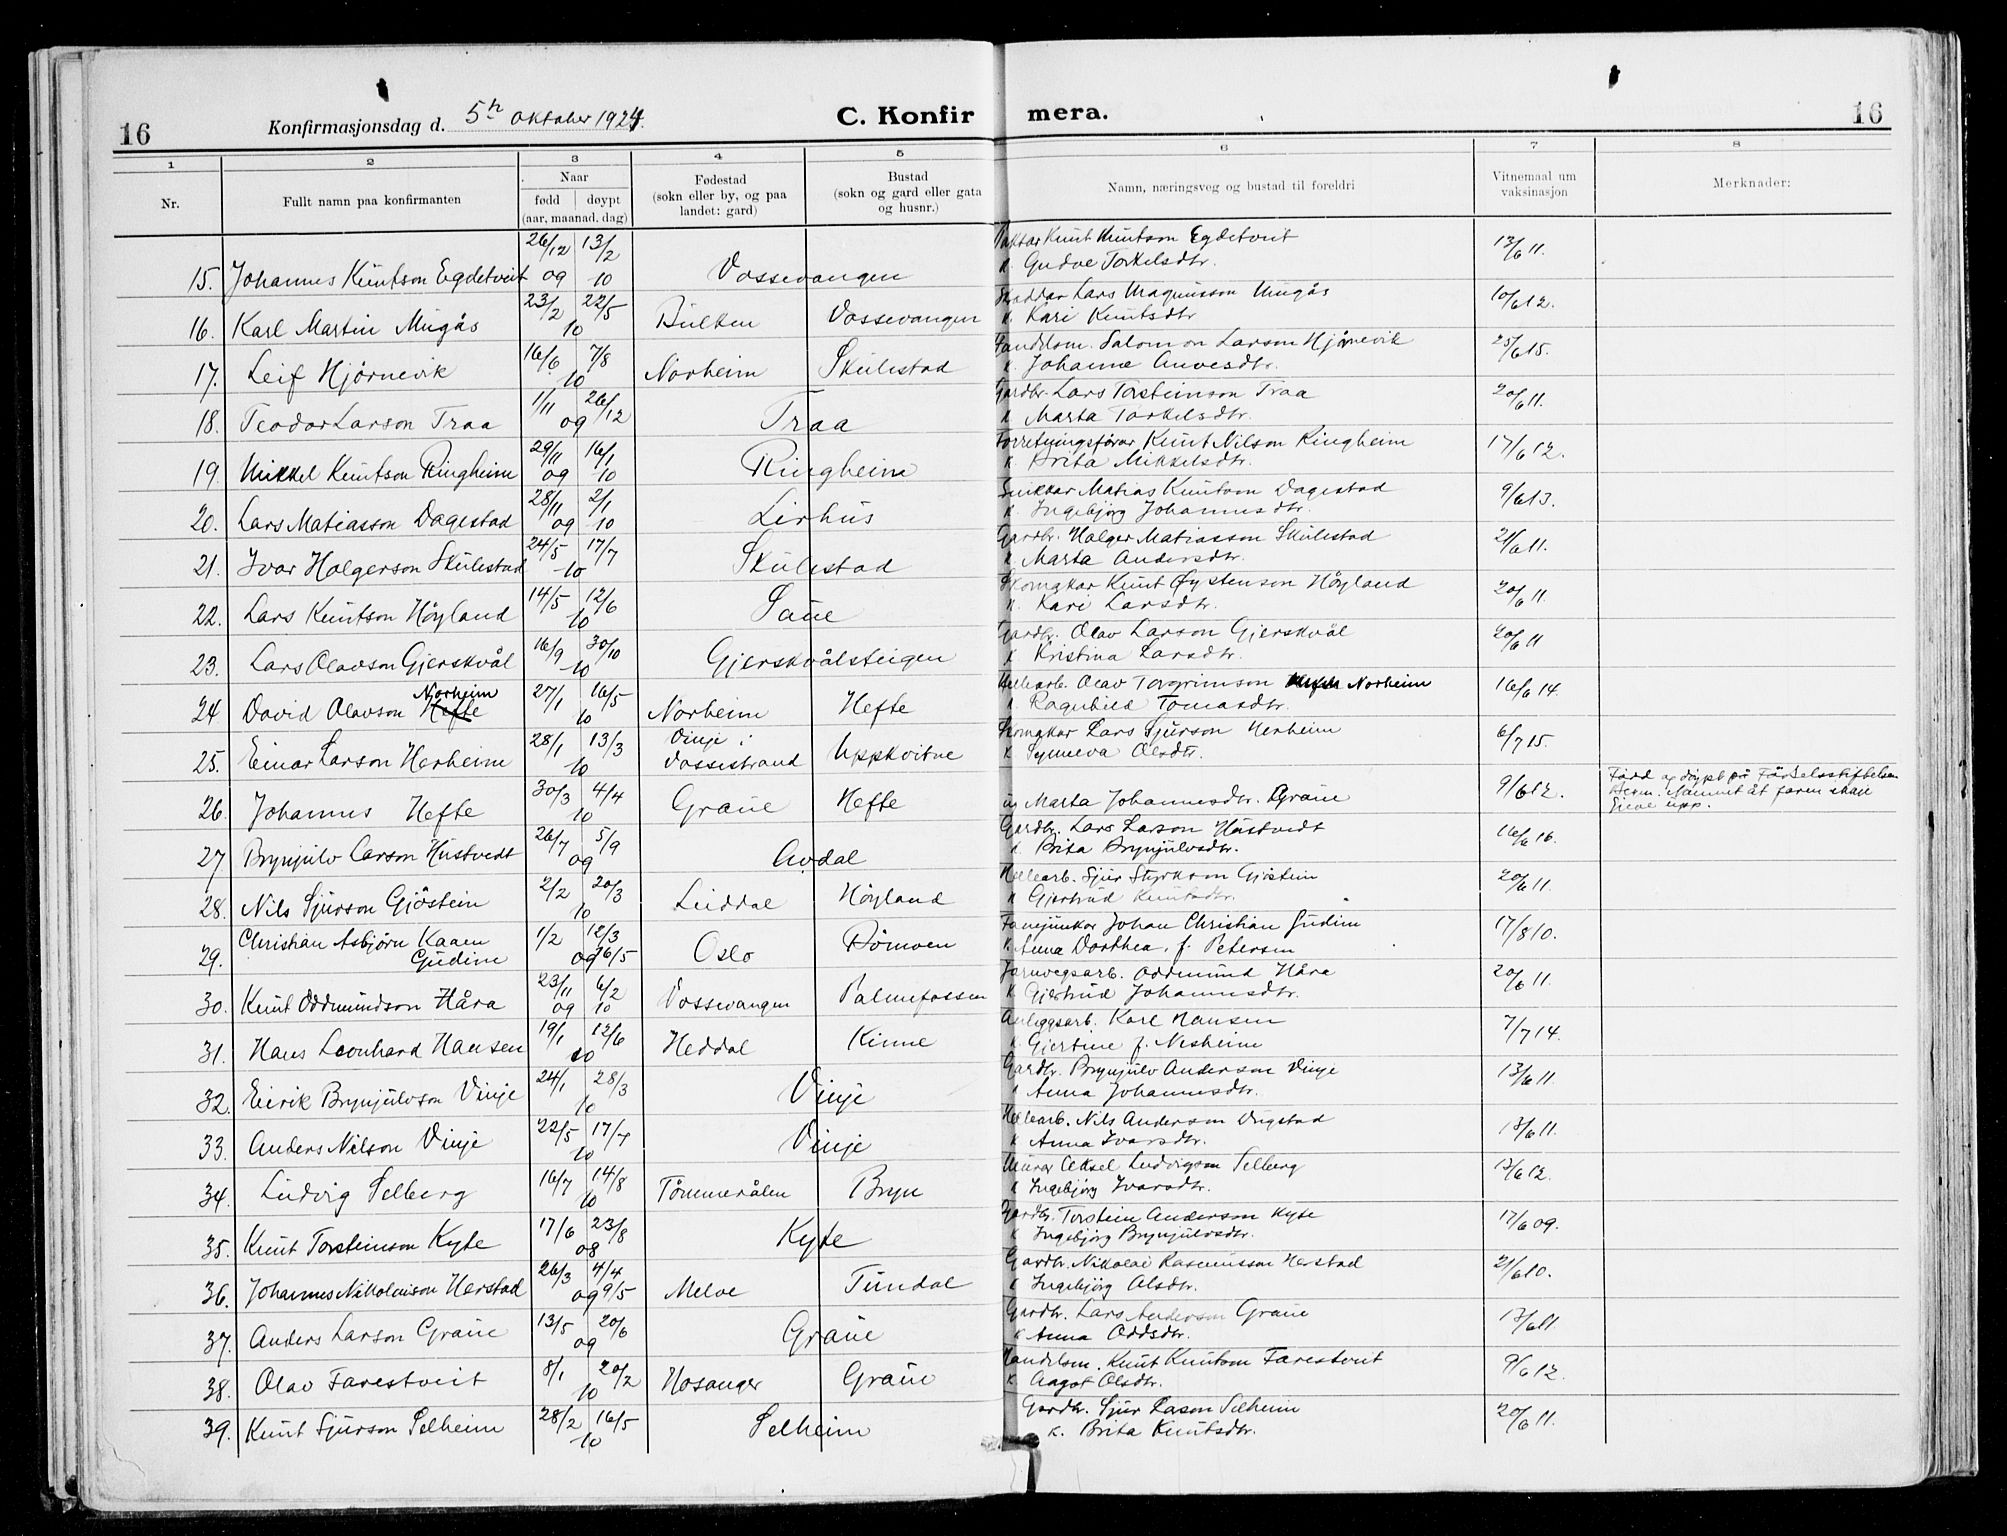 16 Konfirmasjonsdag d. 5te oktober 1924. C. Konfirmera. 16
1 2 3 4 5 6 7 8
Nr. Fullt namn paa konfirmanten Naar født døypt (aar, maanad, dag) Fødestad (sokn eller by, og paa landet: gard) Bustad (sokn og gard eller gata og husnr.) Namn, næringsveg og bustad til foreldri Vitnemaal um vaksinasjon Merknader:
26/12 13/2 Knut Knutson Egdetveit
15. Johannes Knutson Egdetveit 09 10 Vossevangen k. Gudve Torkelsdtr. 13/6 11.
23/2 22/5 Skreddar Lars Magnusson Mugås
16. Karl Martin Mugås 10 Bulken Vossevangen k. Kari Knutsdtr 10/6 12.
16/6 7/8 Handelsm. Salomon Larson Hjørnevik
17. Leif Hjørnevik 10 Norheim Skulestad k. Johanne Anvesdtr. 25/6 15.
1/11 26/12 Gardbr. Lars Torsteinson Traa
18. Teodor Larson Traa 09 Traa k Marta Torkelsdtr. 20/6 11.
29/11 16/1 Forretningsførar Knut Nilson Ringheim
19. Mikkel Knutson Ringheim 09 10 Ringheim k Brita Mikkelsdtr. 17/6 12.
28/11 2/1 Snikkar Matias Knutson Dagestad
20. Lars Matiasson Dagestad 09 10 Lirhus k. Ingebjørg Johannesdtr. 9/6 13.
24/5 17/7 Gardbr. Holger Matiasson Skulestad
21. Ivar Holgerson Skulestad 10 Skulestad k. Marta Andersdtr. 21/6 11.
14/5 12/6 Skomakar Knut Øystenson Høyland
22. Lars Knutson Høyland 10 Saue k. Kari Larsdtr. 20/6 11.
16/9 30/10 Gardbr. Olav Larson Gjerskvål
23. Lars Olavson Gjerskvål 10 Gjerskvålsteigen k Kristina Larsdtr. 20/6 11
Norheim 27/1 16/5 Hellearb. Olav Torgrimson Norheim
24 David Olavson Hefte 10 Norheim Hefte k. Ragnhild Tomasdtr. 16/6 14.
28/1 13/3 Vinje i Skomakar Lars Sjurson Herheim
25. Einar Larson Herheim 10 Vossestrand Uppkvitne k Synneva Olsdtr. 6/7 15.
30/3 4/4 Fødd og døypt på Fødselsstiftelsen
26. Johannes Hefte 10 Graue Hefte ug Marta Johannesdtr. Graue 9/6 12. Bergen. Namnet åt faren skal
upp.
26/7 5/9 Gardbr. Lars Larson Hustvedt
27 Brynjulv Larson Hustvedt 09 Avdal k. Brita Brynjulvsdtr. 16/6 16.
2/2 20/3 Hellearb. Sjur Styrkson Gjøstein
28. Nils Sjurson Gjøstein 10 Liddal Høyland k Gjertrud Knutsdtr. 20/6 11.
Christian Asbjørn Kaaen 1/2 12/3 Fanejunkar Johan Christian Gudim
29. Gudim 09 16/5 Oslo Rømoen k. Anna Dorthea, f. Petersen 17/8 10.
23/11 6/2 Jarnvegsarb. Oddmund Håra
30. Knut Oddmundson Håra 09 10 Vossevangen Palmefossen k Gjertrud Johannesdtr. 20/6 11.
19/1 12/6 Anleggsarb. Karl Hansen
31. Hans Leonhard Hansen 10 Heddal Kinne k. Gjertine f. Nesheim 7/7 14.
24/1 28/3 Gardbr. Brynjulv Anderson Vinje
32. Eirik Brynjulvson Vinje 10 Vinje k Anna Johannesdtr. 13/6 11.
22/5 17/7 Hellearb. Nils Anderson Dugstad
33. Anders Nilson Vinje 10 Vinje k Anna Ivarsdtr. 13/6 11.
16/7 14/8 Murar Aksel Ludvigson Selberg
34. Ludvig Selberg 10 Tømmerålen Bryn k Ingebjørg Ivarsdtr. 13/6 12.
17/6 23/8 Gardbr. Torstein Anderson Kyte
35. Knut Torsteinson Kyte 08 Kyte k Ingebjørg Brynjulvsdtr. 17/6 09.
26/3 4/4 Gardbr. Nikolai Rasmusson Herstad
36. Johannes Nikolaison Herstad 09 9/5 Melve Tundal k Ingebjørg Olsdtr. 21/6 10.
13/5 20/6 Gardbr. Lars Anderson Graue
37. Anders Larson Graue 09 Graue k Anna Oddsdtr. 13/6 11.
8/1 20/2 Handelsm. Knut Knutson Farestveit
38. Olav Farestveit 10 Hosanger Graue k. Aagot Olsdtr. 9/6 12.
28/2 16/5 Gardbr. Sjur Larson Selheim
39. Knut Sjurson Selheim 10 Selheim k. Brita Knutsdtr. 20/6 11.